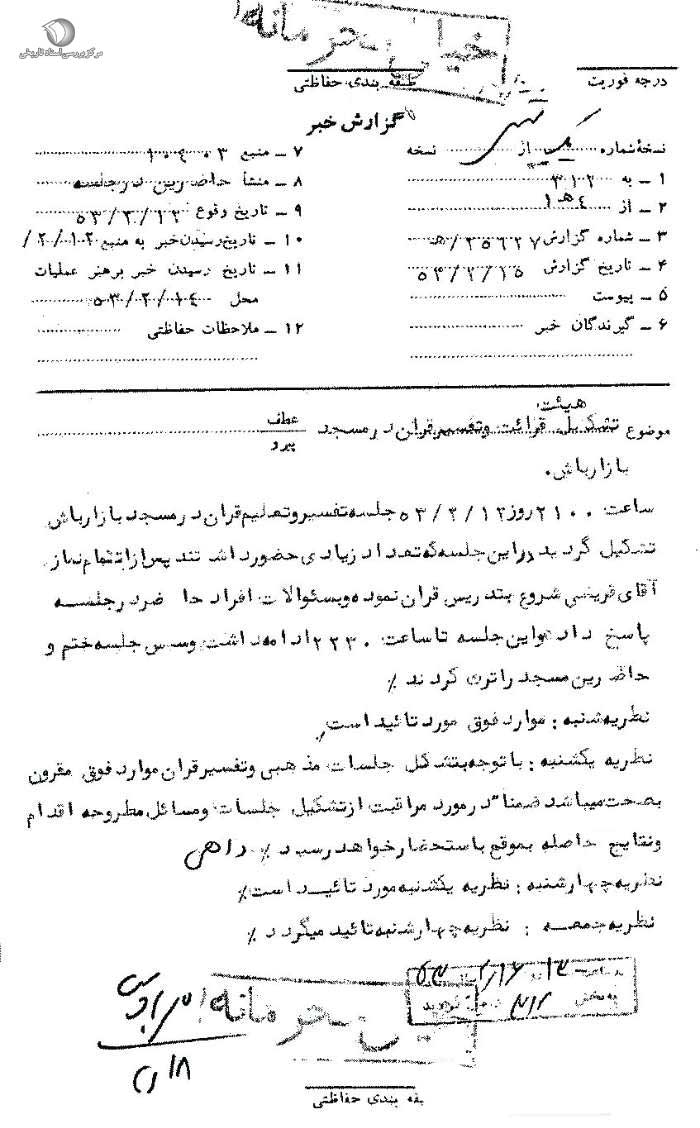 مرکز بررسی اسناد تاریخی
خیلی محرمانه
درجه فوریت
طبقه بندی حفاظتی
گزارش خبر
نسخهٔ شماره یک از نسخه
۱ – به ۳۱۲
۲ – از ٤ هـ ۱
۳ – شماره گزارش ۲۵۶۲۷/هـ
۴ – تاریخ گزارش ۵۳/۲/۱۵
۵ – پیوست
۶ – گیرندگان خبر
۷ – منبع ۱۰۴۰۳
۸ – منشأ حاضرین در جلسه
۹ – تاریخ وقوع ۵۳/۲/۱۲
۱۰ – تاریخ رسیدن خبر به منبع ۲/۰۱۲/
۱۱ – تاریخ رسیدن خبر برهبر عملیات
محل ۵۳/۰۲/۰۱٤
۱۲ – ملاحظات حفاظتی
موضوع تشکیل هیئت قرائت وتفسیرقران درمسجد
عطف
پیرو
بازارباش.
ساعت ۲۱۰۰روز ۵۳/۲/۱۲ جلسه تفسیروتعلیم قران درمسجد بازارباش
تشکیل گردید دراین جلسه که تعداد زیادی حضورداشتند پس ازاتمام نماز
آقای قریشی شروع بتدریس قران نموده وبسئوالات افراد حاضردرجلسه
پاسخ داد واین جلسه تا ساعت ۲۲۳۰ ادامه داشت وسپس جلسه ختم و
حاضرین مسجد راترک کردند ٪
نظریه شنبه : موارد فوق مورد تائید است
نظریه یکشنبه : با توجه بتشکل جلسات مذهبی وتفسیرقران موارد فوق مقرون
بصحت میباشد ضمنا" درمورد مراقبت ازتشکیل جلسات ومسائل مطروحه اقدام
ونتایج حاصله بموقع باستحضارخواهد رسید ٪ راهی
نظریه چهارشنبه : نظریه یکشنبه مورد تائید است٪
نظریه جمعه : نظریه چهارشنبه تائید میگردد ٪
ساعت ۱۳ روز ۵۳/۲/۱۶
به بخش ۳۱۲ گردید
خیلی محرمانه
۲/۱۸
بقه بندی حفاظتی